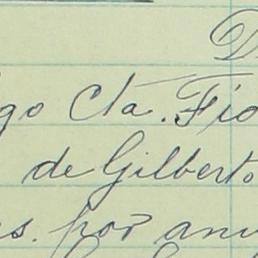 D
go Cta. Fio
de Gilberto
s. por any